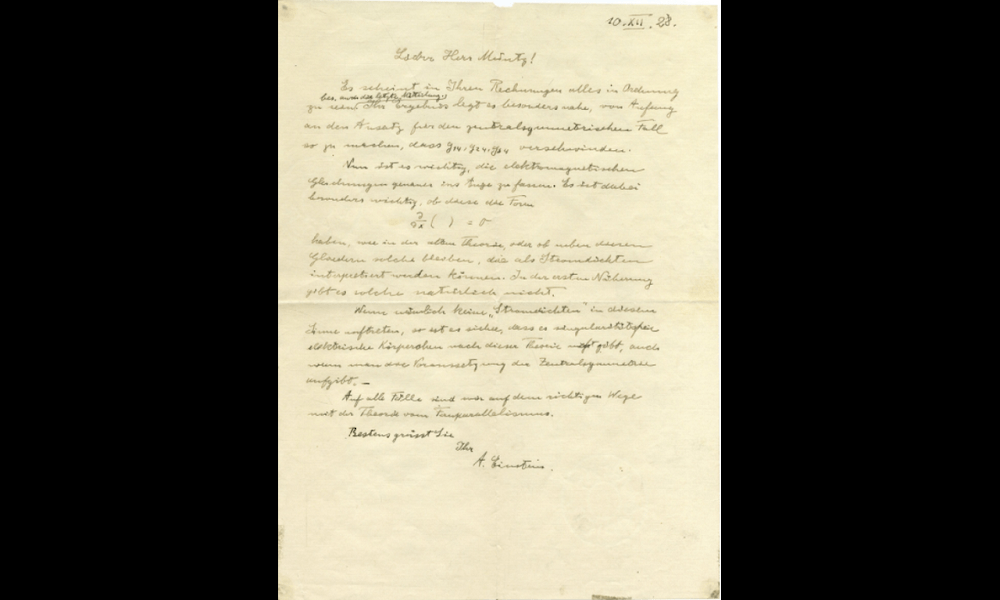 10.XII.28.
Lieber Herr Müntz!
Es scheint in Ihren Rechnungen alles in Ordnung
zu sein. Ihr Ergebnis legt es besonders nahe, von Anfang
an den Ansatz für den zentralsymmetrischen Fall
so zu machen, dass g14, g24, g34 verschwinden.
Nun ist es wichtig, die elektromagnetischen
Gleichungen genauer ins Auge zu fassen. Es ist dabei
besonders wichtig, ob diese die Form
∂/∂x ( ) = 0
haben, wie in der alten Theorie, oder ob neben diesen
Gliedern solche bleiben, die als Stromdichten
interpretiert werden können. In der ersten Näherung
gibt es solche natürlich nicht.
Wenn nämlich keine „Stromdichten" in diesem
Sinne auftreten, so ist es sicher, dass es singularitätsfreie
elektrische Körperchen nach dieser Theorie nicht gibt, auch
wenn man die Voraussetzung der Zentralsymmetrie
aufgibt. —
Auf alle Fälle sind wir auf dem richtigen Wege
mit der Theorie vom Fernparallelismus.
Bestens grüsst Sie
Ihr
A. Einstein.